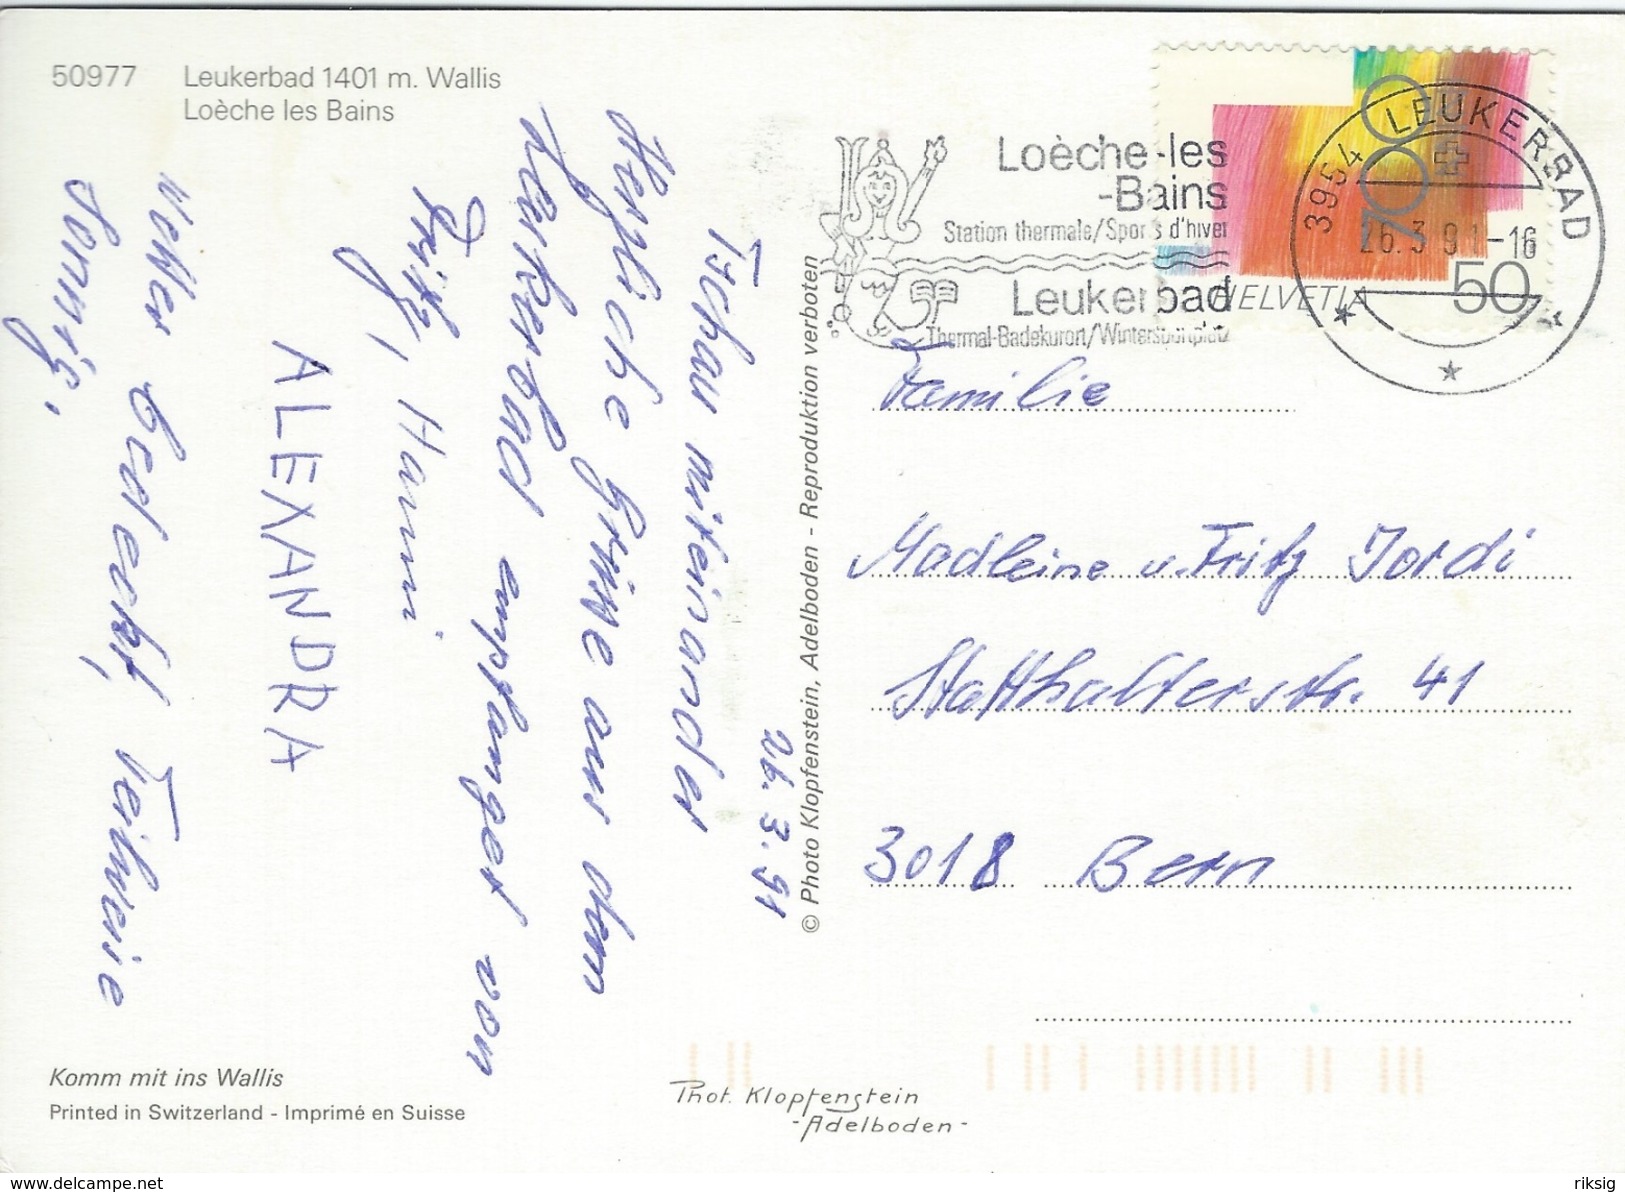 50977 Leukerbad 1401 m. Wallis
Loèche les Bains
Loèche-les
-Bains
Station thermale/Sports d'hiver
Leukerbad
Thermal-Badekurort/Wintersportplatz
3954 LEUKERBAD
26.3.91-16
700
HELVETIA 50
26.3.91
Tschau miteinander
Herzliche Grüsse aus dem
Leukerbad empfanget von
Fritz, Hanni
ALEXANDRA
Wetter bedeckt, Teilweise
sonnig.
© Photo Klopfenstein, Adelboden - Reproduktion verboten
Familie
Madleine u. Fritz Jordi
Statthalterstr. 41
3018 Bern
Komm mit ins Wallis
Printed in Switzerland - Imprimé en Suisse
Phot. Klopfenstein
-Adelboden-
www.delcampe.net
riksig